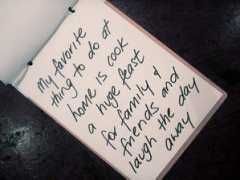 My favorite
thing to do at
home is cook
a huge feast
for family &
friends and
laugh the day
away